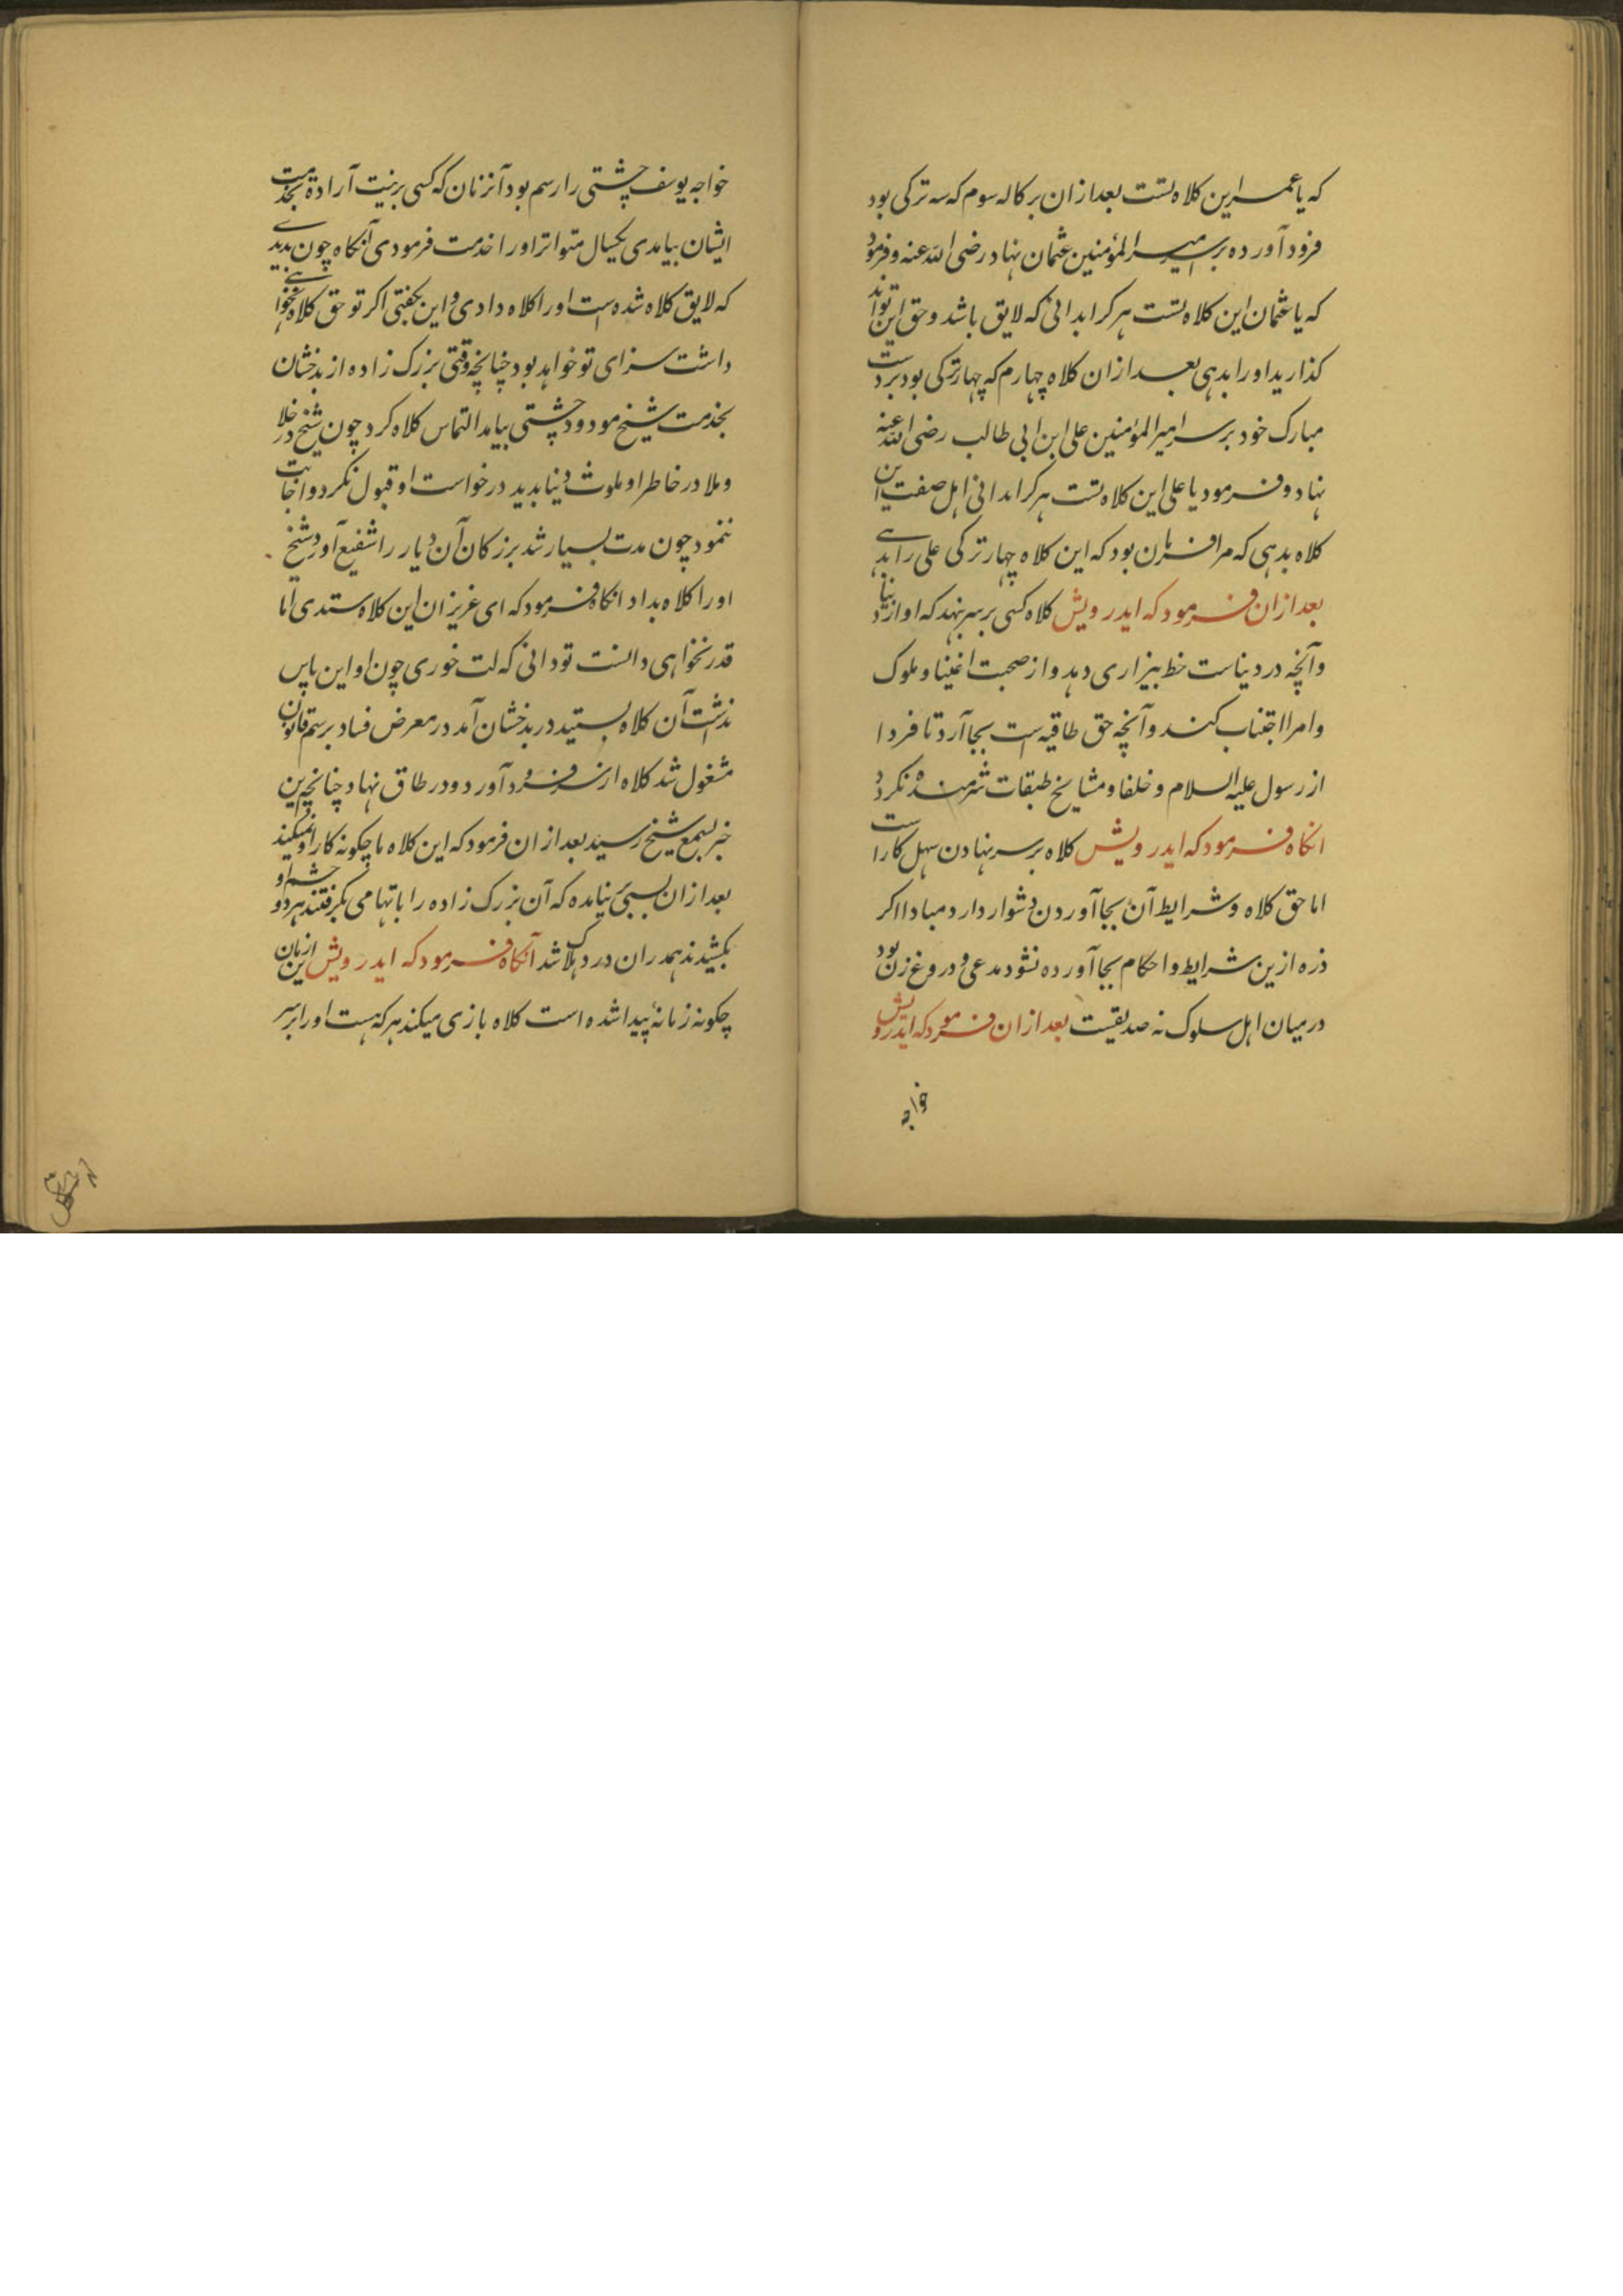 که یا عمر این کلاه تست بعد ازان بر کاله سوم که سه ترکی بود
فرود آورده بر سر امیر المؤمنین عثمان نهاد رضی الله عنه و فرمود
که یا عثمان این کلاه تست هر کرا بدانی که لایق باشد و حق این تواند
کذارید او را بدهی بعد ازان کلاه چهارم که چهار ترکی بود بر دست
مبارک خود بر سر امیر المؤمنین علی ابن ابی طالب رضی الله عنه
نهاد و فرمود یا علی این کلاه تست هر کرا بدانی اهل صفت این
کلاه بدهی که مرا فرمان بود که این کلاه چهار ترکی علی را بدهے
بعد ازان فرمود که ایدرویش کلاه کسی بر سر نهد که او از دنیا
و آنچه در دنیاست خط بیزاری دهد و از صحبت اغنیا و ملوک
و امرا اجتناب کند و آنچه حق طاقیه است بجا آرد تا فردا
از رسول علیه السلام و خلفا و مشایخ طبقات شرمنده نکردد
انکاه فرمود که ایدرویش کلاه بر سر نهادن سهل کار است
اما حق کلاه و شرایط آن بجا آوردن دشوار دارد مبادا اکر
ذره ازین شرایط و احکام بجا آورده نشود مدعی و دروغ زن بود
درمیان اهل سلوک نه صدیقیست بعد ازان فرمود که ایدرویش
خواجه
خواجه یوسف چشتی را رسم بود آنزمان که کسی بر نیت آرادة بخدمت
ایشان بیامدی یکسال متواتر او را خدمت فرمودی آنکاه چون بدیدے
که لایق کلاه شده است او را کلاه دادی و این بکفتی اکر تو حق کلاه نخواهے
داشت سزای تو خواهد بود چنانچه وقتی بزرک زاده از بدخشان
بخدمت شیخ مودود چشتی بیامد التماس کلاه کرد چون شیخ در خلا
و ملا در خاطر او ملوث دنیا بدید درخواست او قبول نکرد و اجابت
ننمود چون مدت بسیار شد بزرکان آن دیار را شفیع آورد شیخ
او را کلاه بداد انکاه فرمود که ای عزیزان این کلاه ستدی اما
قدر نخواهی دانست تو دانی که لت خوری چون او این پاس
نداشت آن کلاه بستید در بدخشان آمد در معرض فساد برسم قانون
مشغول شد کلاه از سر فرود آورد و در طاق نهاد چنانچه این
خبر بسمع شیخ رسید بعد ازان فرمود که این کلاه ما چکونه کار او نمیکند
بعد ازان بسیی نیامده که آن بزرک زاده را باتهامی بکرفتند هر دو چشم او
بکشیدند همدران درد هلاک شد آنکاه فرمود که ایدرویش ازین زمان
چکونه زمانهٔ پیدا شده است کلاه بازی میکند هر که هست او را بر سر